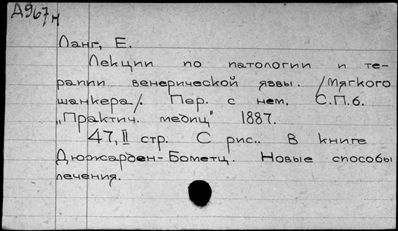 Д967н
Ланг, Е.
Лекции по патологии и те-
рапии венерической язвы. /Мягкого
шанкера/. Пер. с нем. С.П.б.
„Практич. медиц" 1887.
47, II стр. С рис.. В книге
Дюжарден-Бометц. Новые способы
лечения.